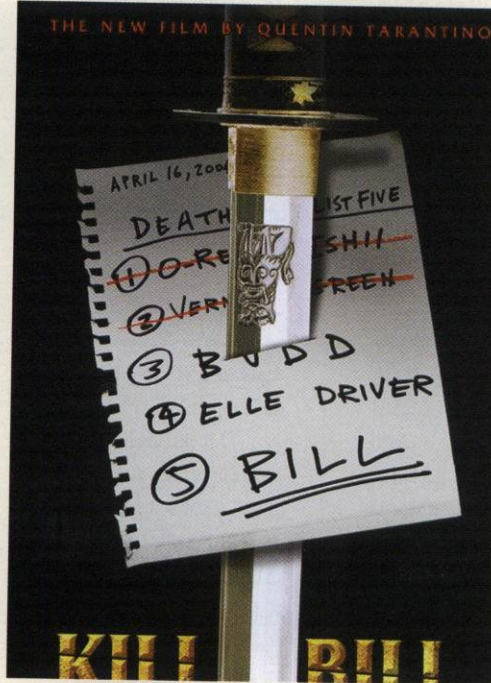 THE NEW FILM BY QUENTIN TARANTINO
APRIL 16, 200
DEATH LIST FIVE
① O-RE SHII
② VERN REEN
③ BUDD
④ ELLE DRIVER
⑤ BILL
KILL BILL